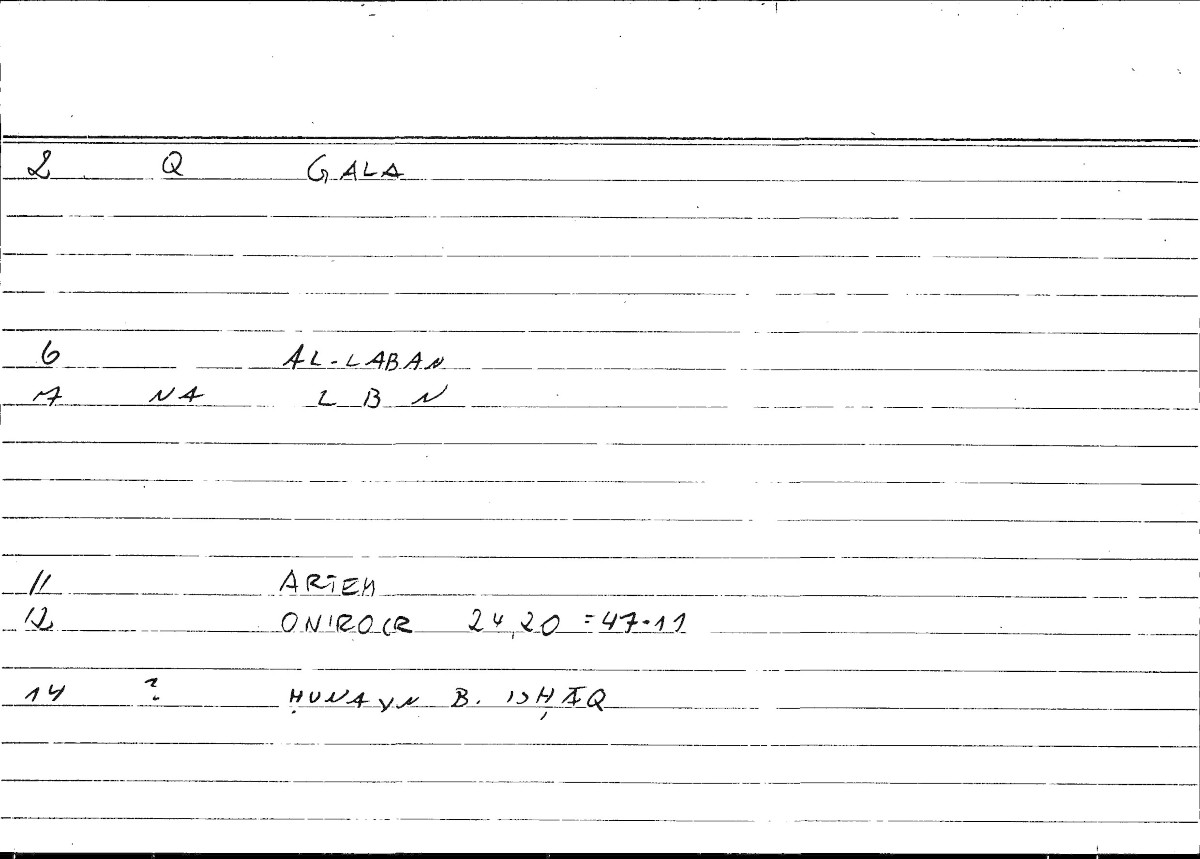 2 Q GALA
6 AL-LABAN
7 NA L B N
11 ARTEM
12 ONIROCR 24,20 = 47.11
14 ? ḤUNAYN B. ISḤĀQ